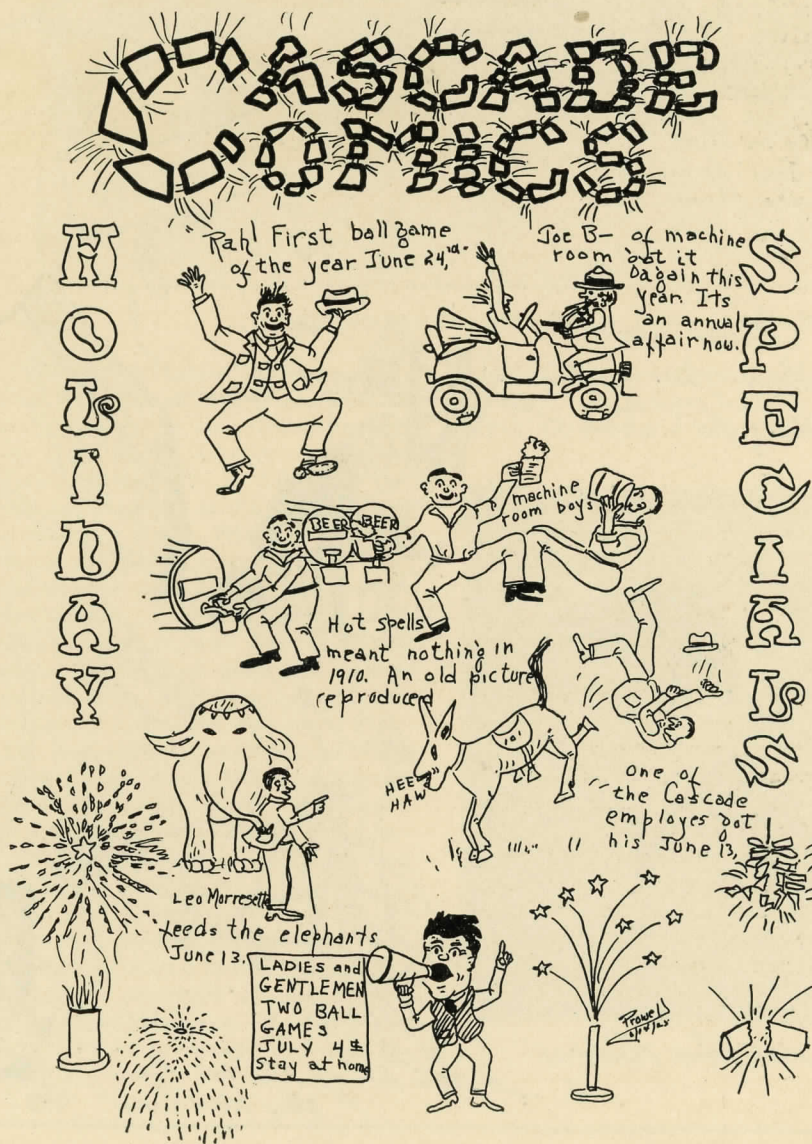 CASCADE
COMICS
HOLIDAY
SPECIALS
Rah! First ball game
of the year June 24,
Joe B— of machine
room got it
again this
year. Its
an annual
affair now.
BEER BEER
machine
room boys
Hot spells
meant nothing in
1910. An old picture
reproduced
HEE
HAW
one of
the Cascade
employes got
his June 13,
Leo Morresette
feeds the elephants
June 13.
LADIES and
GENTLEMEN
TWO BALL
GAMES
JULY 4th
stay at home
Prowell